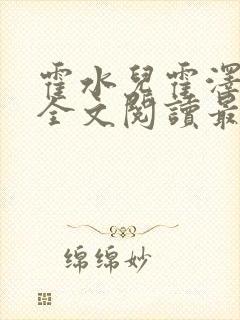 霍水兒霍澤
全文閱讀最
绵绵妙